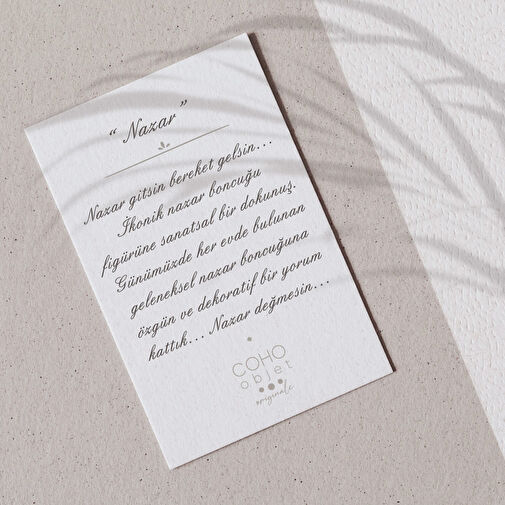 “ Nazar ”
Nazar gitsin bereket gelsin...
İkonik nazar boncuğu
figürüne sanatsal bir dokunuş.
Günümüzde her evde bulunan
geleneksel nazar boncuğuna
özgün ve dekoratif bir yorum
kattık... Nazar değmesin...
COHO
objet
originale